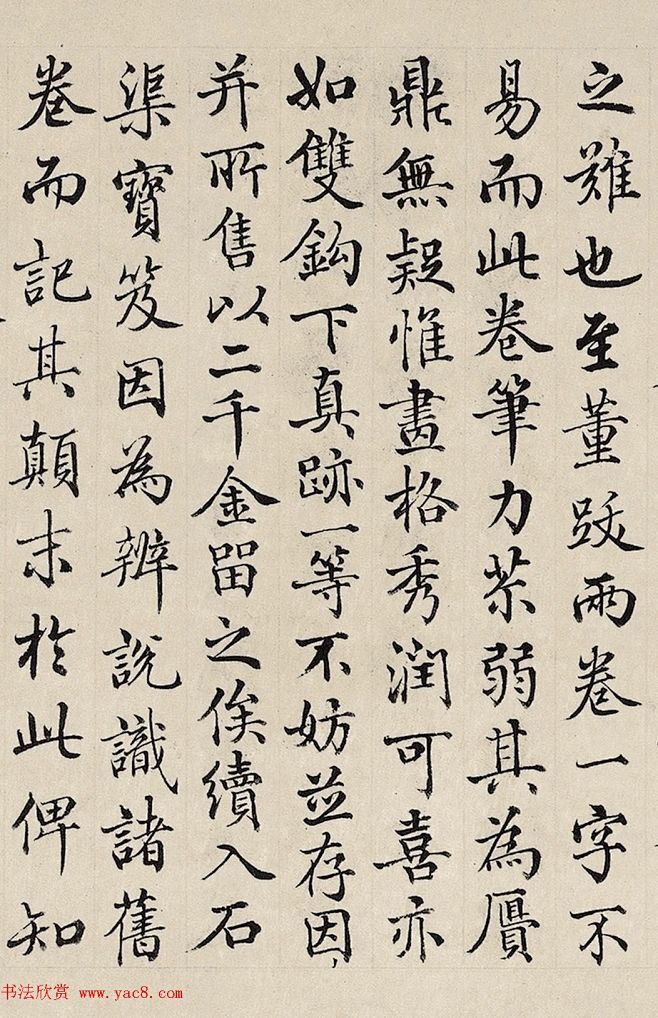 之難也至董跋兩卷一字不
易而此卷筆力苶弱其為贋
鼎無疑惟畫格秀潤可喜亦
如雙鈎下真跡一等不妨並存因
并所售以二千金留之俟續入石
渠寶笈因為辨說識諸舊
卷而記其顛末於此俾知
书法欣赏 www.yac8.com